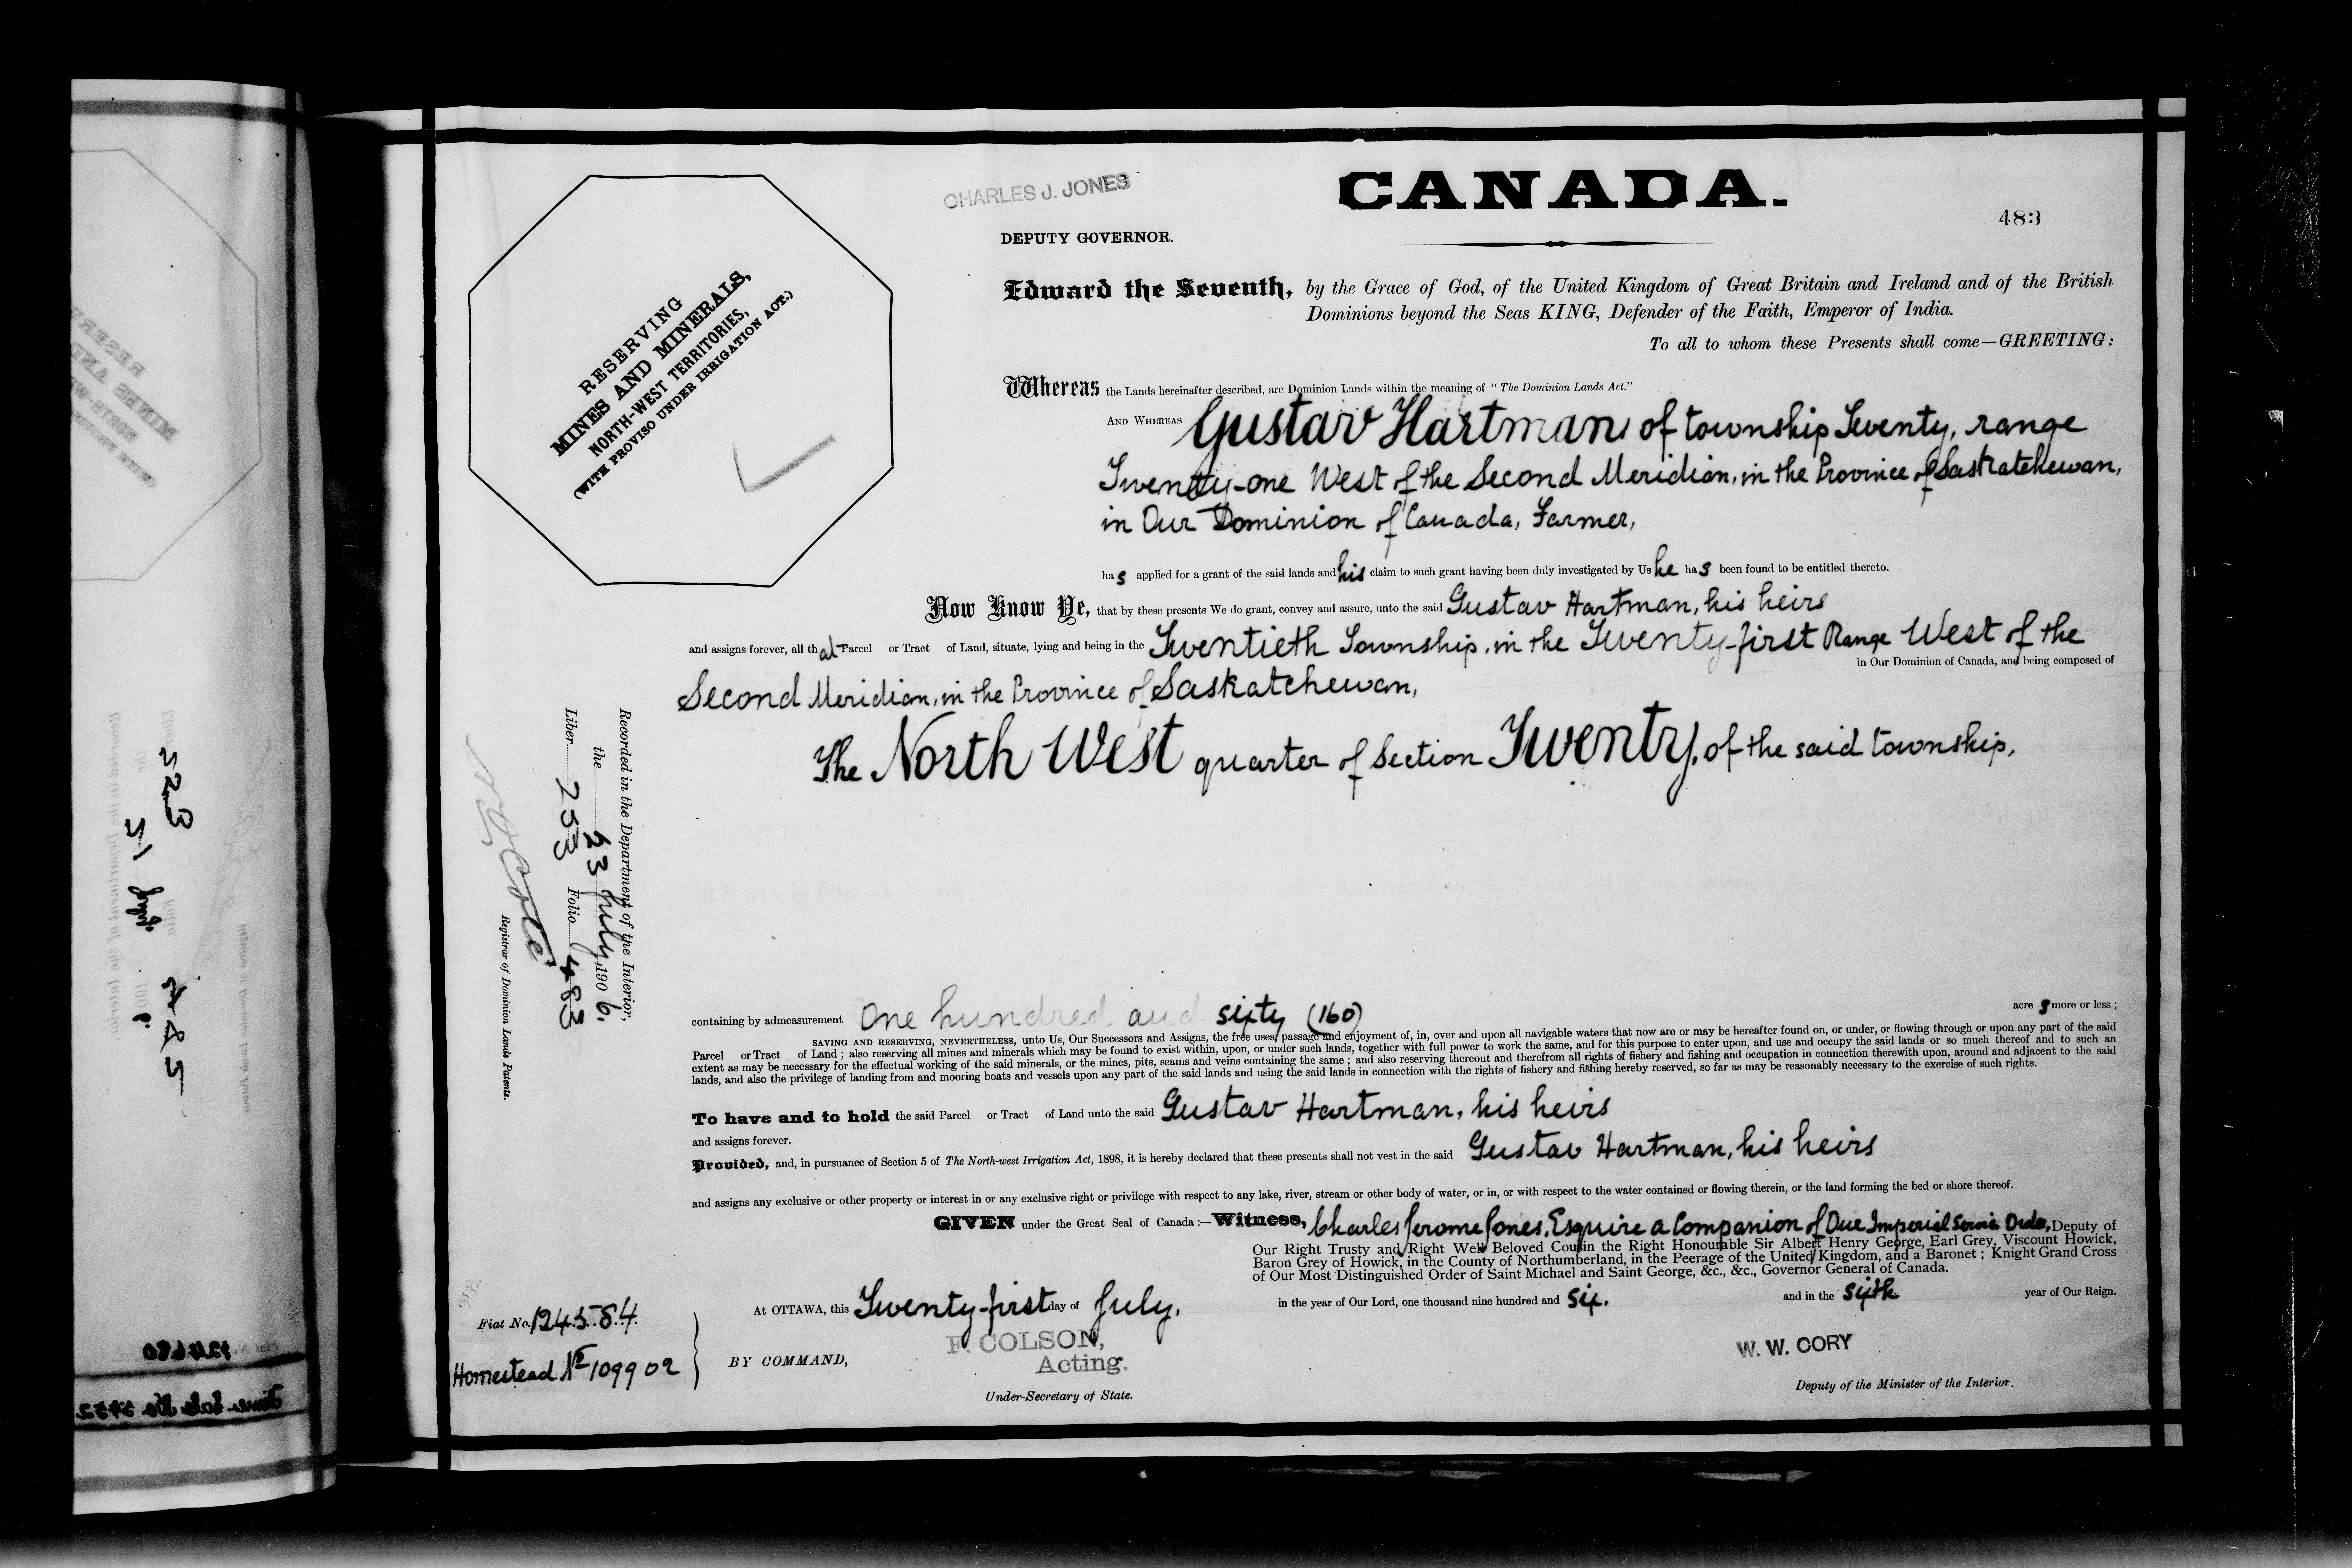 CHARLES J. JONES
CANADA.
483
DEPUTY GOVERNOR.
RESERVING
MINES AND MINERALS,
NORTH-WEST TERRITORIES,
(WITH PROVISO UNDER IRRIGATION ACT.)
Edward the Seventh, by the Grace of God, of the United Kingdom of Great Britain and Ireland and of the British
Dominions beyond the Seas KING, Defender of the Faith, Emperor of India.
To all to whom these Presents shall come—GREETING:
Whereas the Lands hereinafter described, are Dominion Lands within the meaning of "The Dominion Lands Act."
AND WHEREAS Gustav Hartman, of township Twenty, range
Twenty-one West of the Second Meridian, in the Province of Saskatchewan,
in Our Dominion of Canada, Farmer,
has applied for a grant of the said lands and his claim to such grant having been duly investigated by Us he has been found to be entitled thereto.
Now Know Ye, that by these presents We do grant, convey and assure, unto the said Gustav Hartman, his heirs
and assigns forever, all that Parcel or Tract of Land, situate, lying and being in the Twentieth Township, in the Twenty-first Range West of the
in Our Dominion of Canada, and being composed of
Second Meridian, in the Province of Saskatchewan,
The North West quarter of Section Twenty, of the said township,
containing by admeasurement One hundred and sixty (160) acres more or less;
SAVING AND RESERVING, NEVERTHELESS, unto Us, Our Successors and Assigns, the free uses, passage and enjoyment of, in, over and upon all navigable waters that now are or may be hereafter found on, or under, or flowing through or upon any part of the said
Parcel or Tract of Land; also reserving all mines and minerals which may be found to exist within, upon, or under such lands, together with full power to work the same, and for this purpose to enter upon, and use and occupy the said lands or so much thereof and to such an
extent as may be necessary for the effectual working of the said minerals, or the mines, pits, seams and veins containing the same; and also reserving thereout and therefrom all rights of fishery and fishing and occupation in connection therewith upon, around and adjacent to the said
lands, and also the privilege of landing from and mooring boats and vessels upon any part of the said lands and using the said lands in connection with the rights of fishery and fishing hereby reserved, so far as may be reasonably necessary to the exercise of such rights.
To have and to hold the said Parcel or Tract of Land unto the said Gustav Hartman, his heirs
and assigns forever.
Provided, and, in pursuance of Section 5 of The North-west Irrigation Act, 1898, it is hereby declared that these presents shall not vest in the said Gustav Hartman, his heirs
and assigns any exclusive or other property or interest in or any exclusive right or privilege with respect to any lake, river, stream or other body of water, or in, or with respect to the water contained or flowing therein, or the land forming the bed or shore thereof.
GIVEN under the Great Seal of Canada:—Witness, Charles Jerome Jones, Esquire a Companion of Our Imperial Service Order, Deputy of
Our Right Trusty and Right Well Beloved Cousin the Right Honourable Sir Albert Henry George, Earl Grey, Viscount Howick,
Baron Grey of Howick, in the County of Northumberland, in the Peerage of the United Kingdom, and a Baronet; Knight Grand Cross
of Our Most Distinguished Order of Saint Michael and Saint George, &c., &c., Governor General of Canada.
At OTTAWA, this Twenty-first day of July, in the year of Our Lord, one thousand nine hundred and six. and in the sixth year of Our Reign.
BY COMMAND,
F. COLSON,
Acting.
Under-Secretary of State.
W. W. CORY
Deputy of the Minister of the Interior.
Fiat No. 124584
Homestead No 109902
Recorded in the Department of the Interior,
the 23 July, 1906.
Liber 253 Folio 483
N O Coté
Registrar of Dominion Lands Patents.
523
485